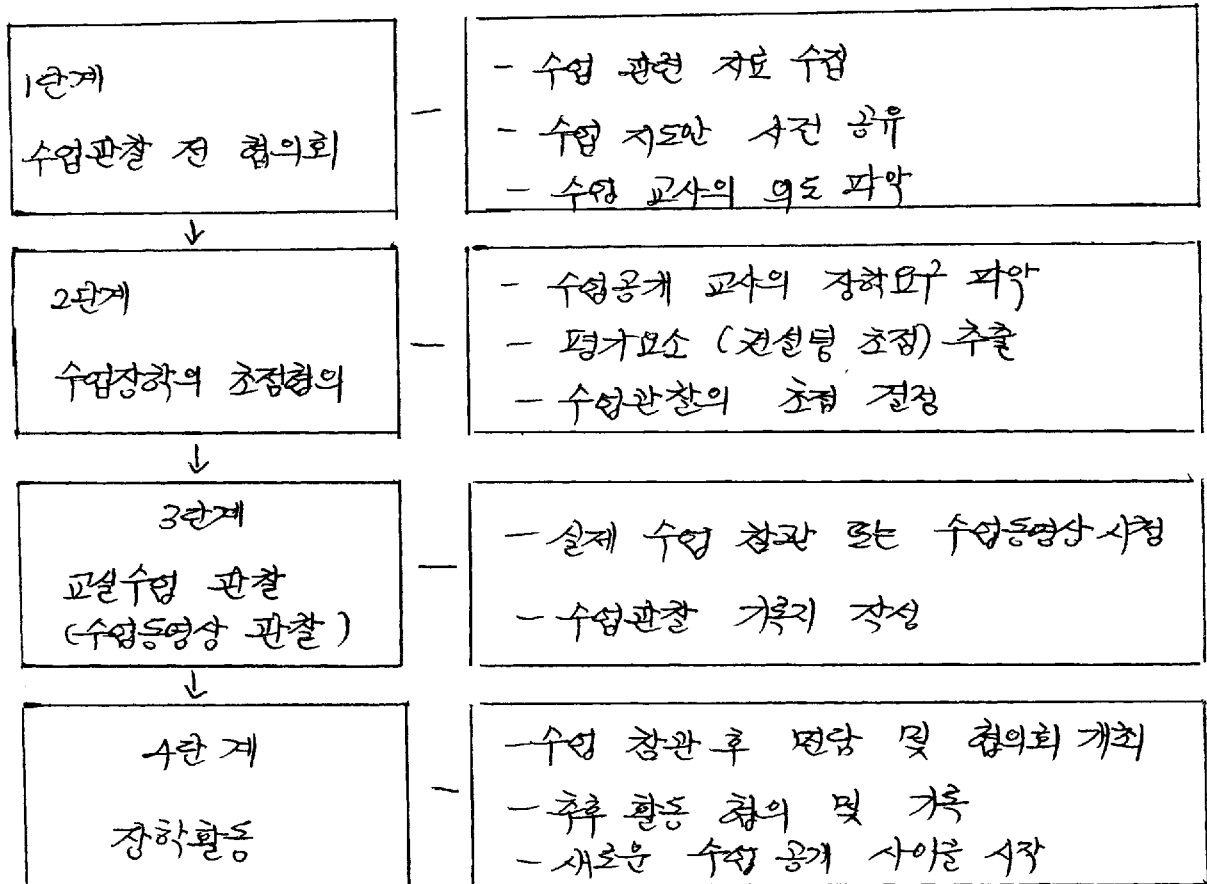 1단계
수업관찰 전 협의회
- 수업 관련 자료 수집
- 수업 지도안 사전 공유
- 수업 교사의 의도 파악
2단계
수업장학의 초점협의
- 수업공개 교사의 장학요구 파악
- 평가요소 (컨설팅 초점) 추출
- 수업관찰의 초점 결정
3단계
교실수업 관찰
(수업동영상 관찰)
- 실제 수업 참관 또는 수업동영상 시청
- 수업관찰 기록지 작성
4단계
장학활동
- 수업 참관 후 면담 및 협의회 개최
- 추후 활동 협의 및 기록
- 새로운 수업 공개 사이클 시작